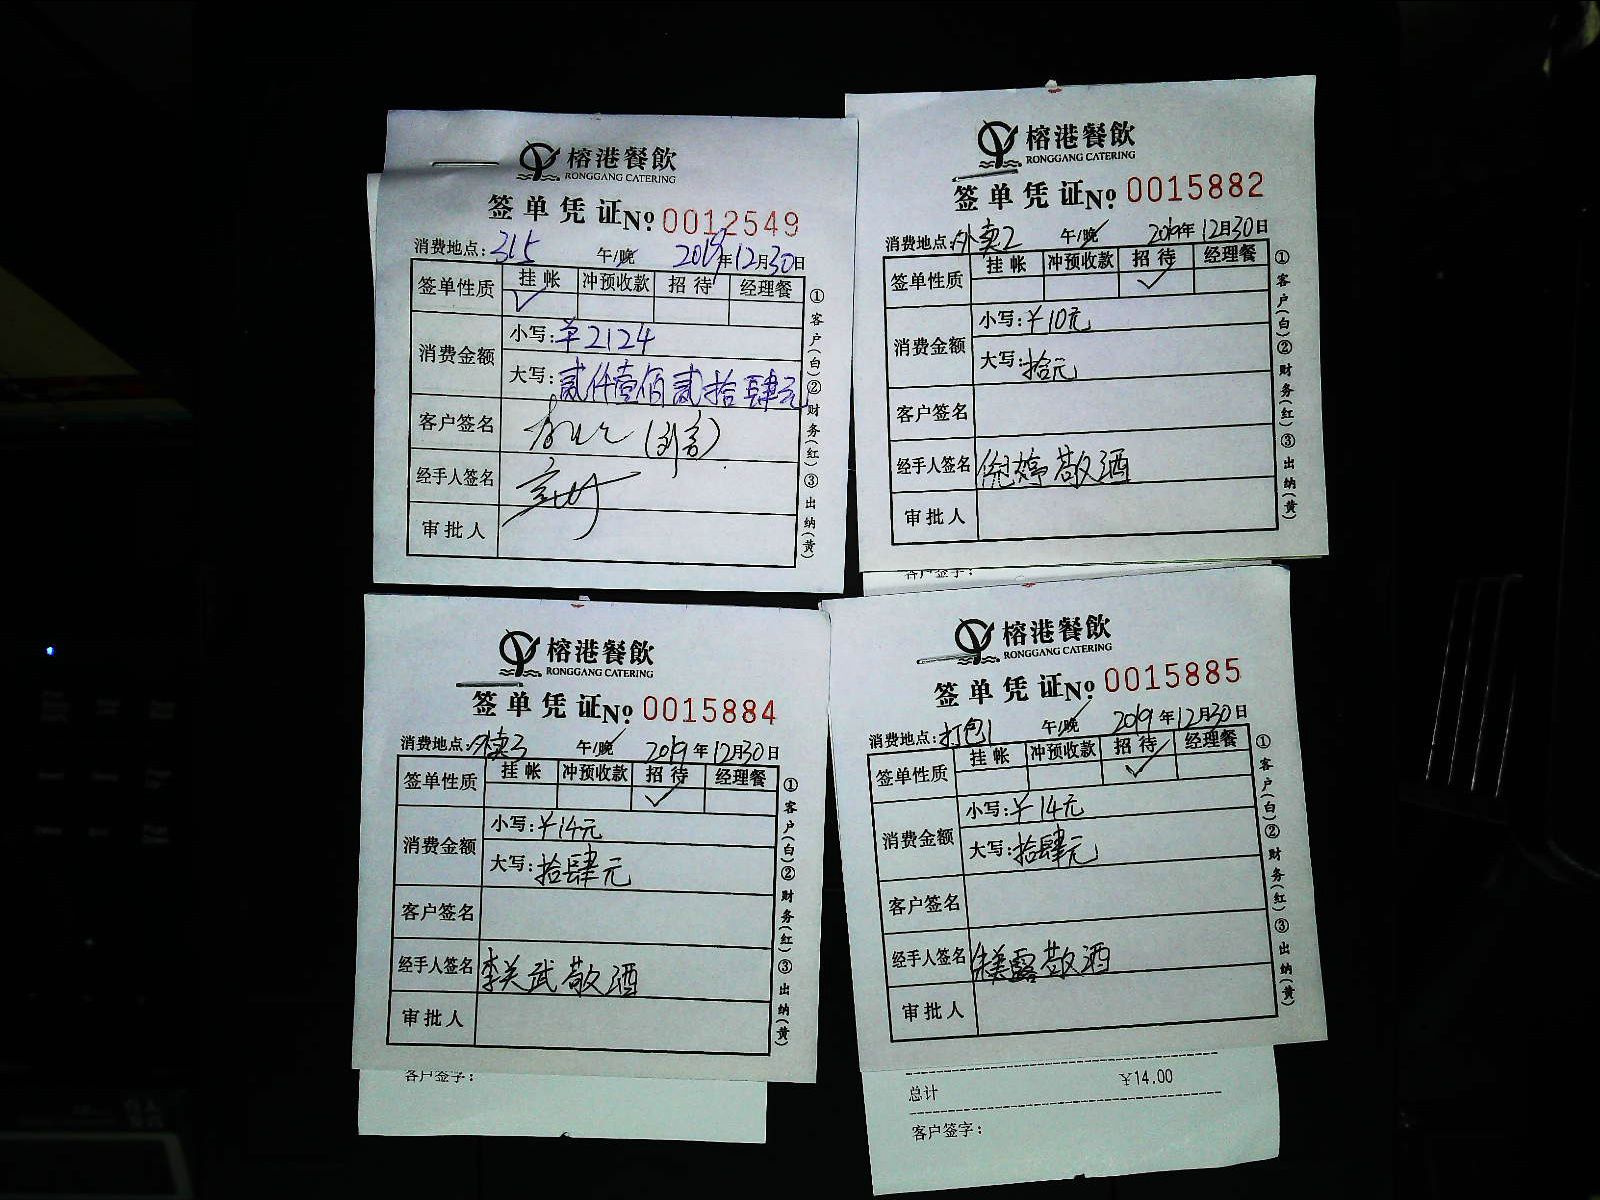 榕港餐飲
RONGGANG CATERING
签单凭证 № 0012549
消费地点: 315 午/晚 2019年12月30日
签单性质 挂帐 冲预收款 招待 经理餐
✓
消费金额 小写: ¥2124
大写: 贰仟壹佰贰拾肆元
客户签名
经手人签名
审批人
①客户(白)②财务(红)③出纳(黄)
榕港餐飲
RONGGANG CATERING
签单凭证 № 0015882
消费地点: 外卖2 午/晚 2019年12月30日
签单性质 挂帐 冲预收款 招待 经理餐
✓
消费金额 小写: ¥10元
大写: 拾元
客户签名
经手人签名 倪婷敬酒
审批人
①客户(白)②财务(红)③出纳(黄)
客户签字:
榕港餐飲
RONGGANG CATERING
签单凭证 № 0015884
消费地点: 外卖3 午/晚 2019年12月30日
签单性质 挂帐 冲预收款 招待 经理餐
✓
消费金额 小写: ¥14元
大写: 拾肆元
客户签名
经手人签名 李关武敬酒
审批人
①客户(白)②财务(红)③出纳(黄)
客户签字:
榕港餐飲
RONGGANG CATERING
签单凭证 № 0015885
消费地点: 打包1 午/晚 2019年12月30日
签单性质 挂帐 冲预收款 招待 经理餐
✓
消费金额 小写: ¥14元
大写: 拾肆元
客户签名
经手人签名 朱美露敬酒
审批人
①客户(白)②财务(红)③出纳(黄)
总计 ¥14.00
客户签字: